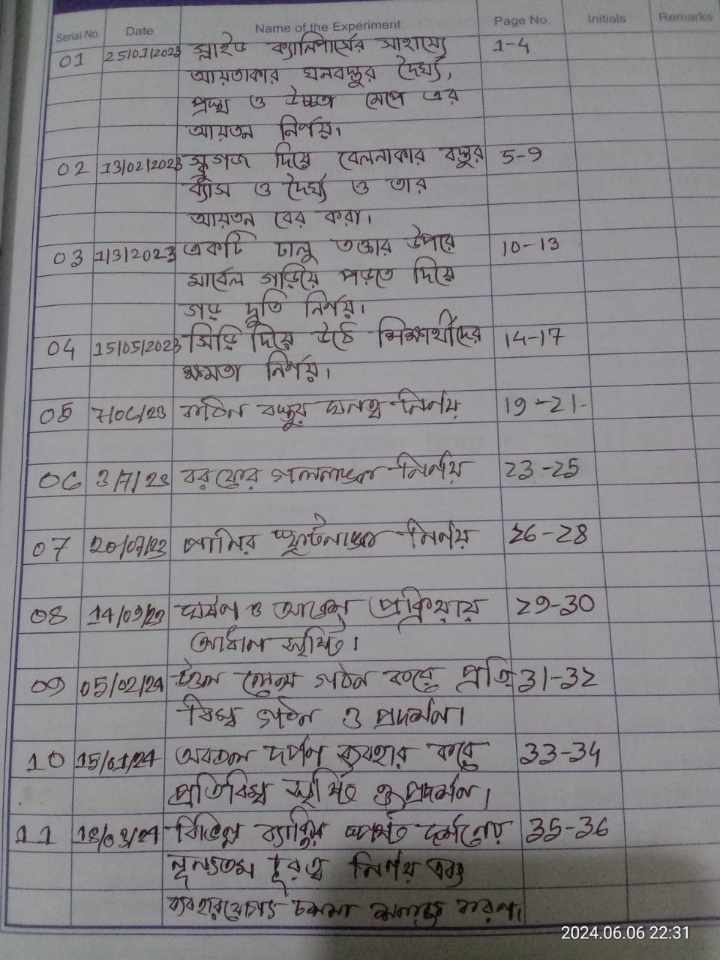 Serial No. Date Name of the Experiment Page No. Initials Remarks
01 25/01/2023 স্লাইড ক্যালিপার্সের সাহায্যে 1-4
আয়তাকার ঘনবস্তুর দৈর্ঘ্য,
প্রস্থ ও উচ্চতা মেপে এর
আয়তন নির্ণয়।
02 13/02/2023 স্ক্রুগজ দিয়ে বেলনাকার বস্তুর 5-9
ব্যাস ও দৈর্ঘ্য ও তার
আয়তন বের করা।
03 1/3/2023 একটি ঢালু তক্তার উপরে 10-13
মার্বেল গড়িয়ে পড়তে দিয়ে
গড় দ্রুতি নির্ণয়।
04 15/05/2023 সিড়ি দিয়ে উঠে শিক্ষার্থীদের 14-17
ক্ষমতা নির্ণয়।
05 7/06/23 কঠিন বস্তুর ঘনত্ব নির্ণয় 19-21
06 3/7/23 বরফের গলনাঙ্ক নির্ণয় 23-25
07 20/07/23 পানির স্ফুটনাঙ্ক নির্ণয় 26-28
08 14/09/23 ঘর্ষণ ও আবেশ প্রক্রিয়ায় 29-30
আধান সৃষ্টি।
09 05/02/24 উত্তল লেন্স গঠন করে প্রতি 31-32
বিম্ব গঠন ও প্রদর্শন।
10 15/01/24 অবতল দর্পণ ব্যবহার করে 33-34
প্রতিবিম্ব সৃষ্টি ও প্রদর্শন।
11 18/03/24 বিভিন্ন ব্যাক্তির স্পষ্ট দর্শনের 35-36
নূন্যতম দূরত্ব নির্ণয় এবং
ব্যবহারযোগ্য চশমা করণ।
2024.06.06 22:31